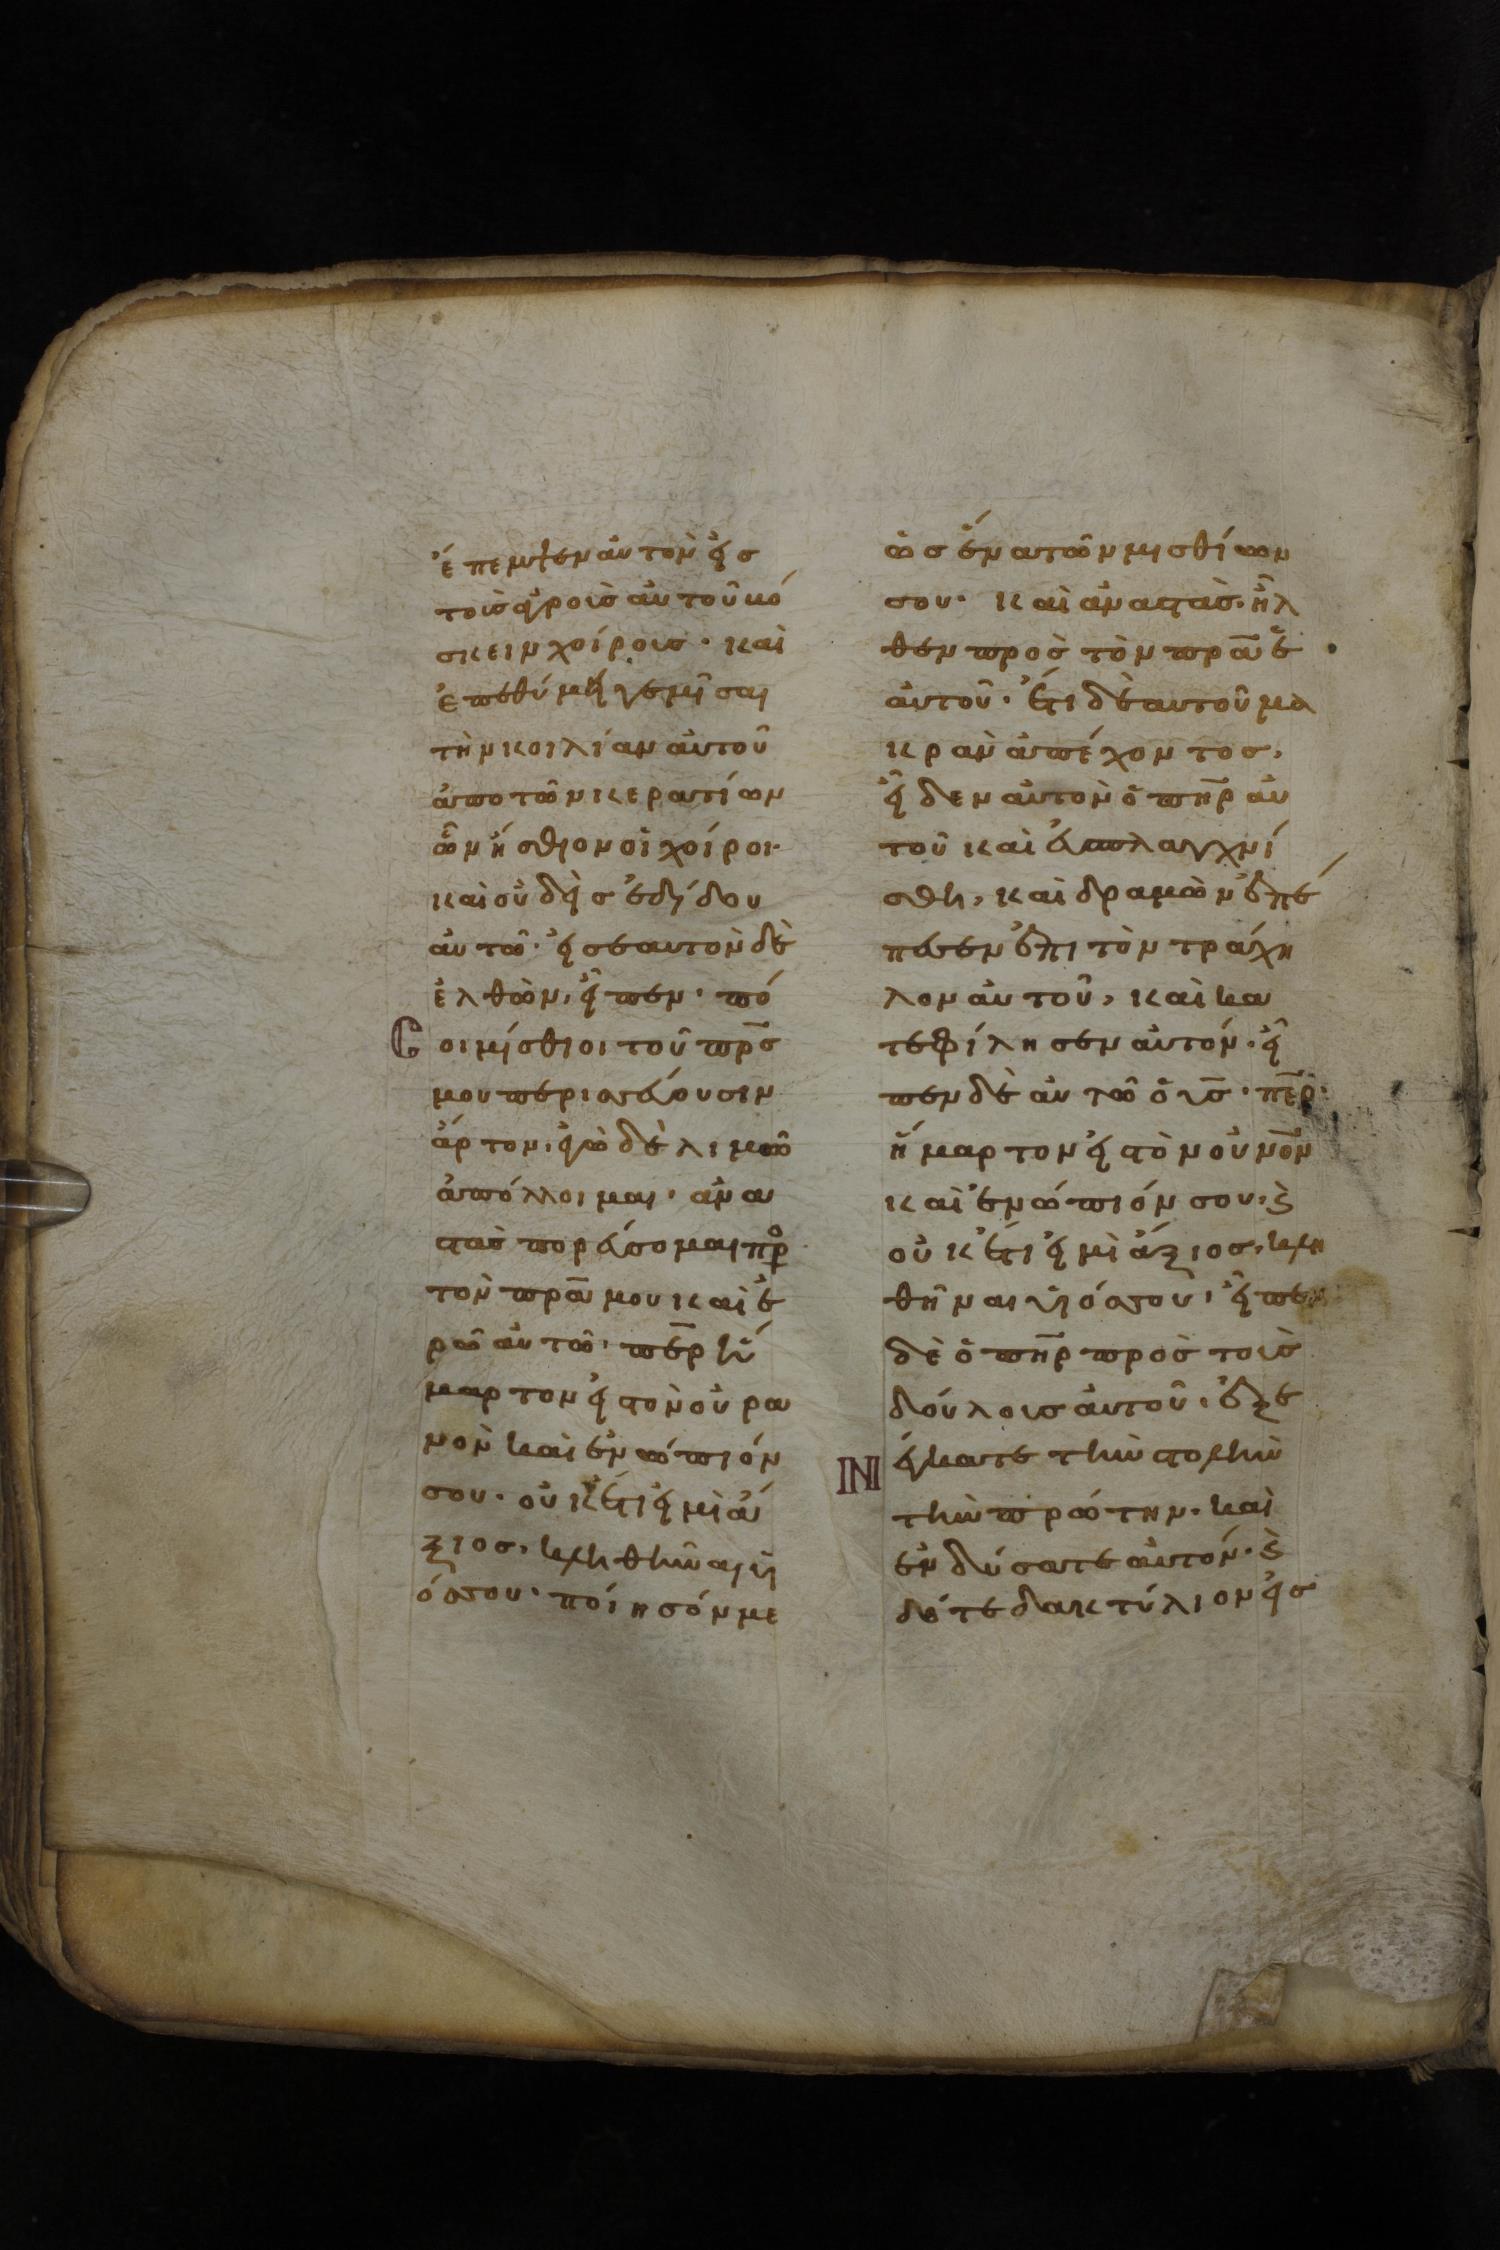 ἔπεμψεν αὐτὸν εἰς
τοῖς ἀγροῖς αὐτοῦ βό
σκειν χοίροις· καὶ
ἐπεθύμει γεμῖσαι
τὴν κοιλίαν αὐτοῦ
ἀπο τῶν κερατίων
ὧν ἤσθιον οἱ χοίροι·
καὶ οὐδεὶς ἐδίδου
αὐτῶ· εἰς εαυτὸν δὲ
ἐλθὼν, εἶπεν· πό
σοι μίσθιοι τοῦ πρ̅ς
μου περισσεύουσιν
ἄρτον, ἐγὼ δὲ λιμῶ
ἀπόλλοιμαι· ἀνα
στὰς πορεύσομαι πρ̥ο
τὸν πρ̅α μου καὶ ἐ
ρῶ αὐτῶ· πε̅ρ ἥ
μαρτον εἰς τὸν οὐρα
νὸν καὶ ἐνώπιόν
σου· οὐκέτι εἰμὶ ἄ
ξιος, κληθῆναι ὑι
ός σου· ποίησόν με
ὡς ἕνα τῶν μισθίων
σου· καὶ ἀναστὰς· ἦλ
θεν πρὸς τὸν πρ̅α ἑ
αυτοῦ· ἔτι δὲ αυτοῦ μα
κρὰν ἀπέχοντος,
εἶδεν αὐτὸν ὁ πη̅ρ αὐ
τοῦ καὶ ἐυσπλαγχνί
σθη, καὶ δραμὼν ἐπέ
πεσεν ἐπι τὸν τράχη
λον αὐτοῦ, καὶ κα
τεφίλησεν αὐτόν· εἶ
πεν δὲ αὐτῶ ὁ υι̅ς· πε̅ρ·
ἥμαρτον εἰς τὸν οὐν̅ον
καὶ ἐνώπιόν σου, ϗ
οὐκέτι εἰμὶ ἄξιος, κλη
θῆναι υἱός σου· εἶπεν
δὲ ὁ πη̅ρ πρὸς τοὺς
δούλους αὐτοῦ· ἐξε
νέγκατε τὴν στολὴν
τὴν πρώτην· καὶ
ἐνδύσατε αὐτόν· ϗ
δότε δακτύλιον εἰς